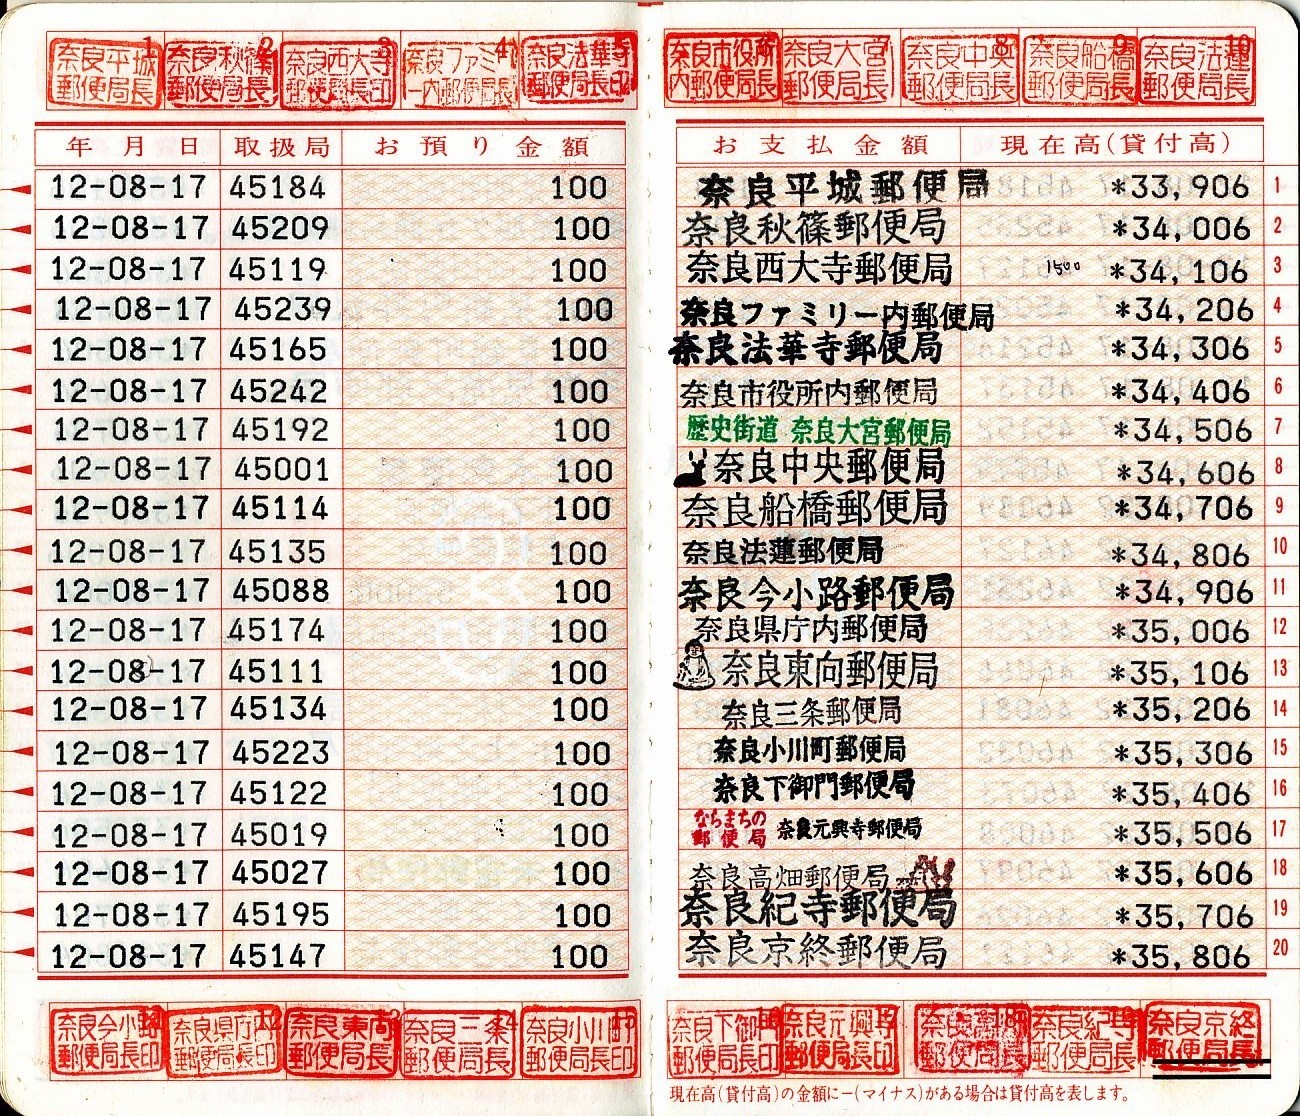 1 奈良平城郵便局長
2 奈良秋篠郵便局長
3 奈良西大寺郵便局長印
4 奈良ファミリー内郵便局長
5 奈良法華寺郵便局長印
6 奈良市役所内郵便局長
7 奈良大宮郵便局長
8 奈良中央郵便局長
9 奈良船橋郵便局長
10 奈良法蓮郵便局長
年月日 取扱局 お預り金額 お支払金額 現在高(貸付高)
12-08-17 45184 100 奈良平城郵便局 *33,906 1
12-08-17 45209 100 奈良秋篠郵便局 *34,006 2
12-08-17 45119 100 奈良西大寺郵便局 1500 *34,106 3
12-08-17 45239 100 奈良ファミリー内郵便局 *34,206 4
12-08-17 45165 100 奈良法華寺郵便局 *34,306 5
12-08-17 45242 100 奈良市役所内郵便局 *34,406 6
12-08-17 45192 100 歴史街道 奈良大宮郵便局 *34,506 7
12-08-17 45001 100 奈良中央郵便局 *34,606 8
12-08-17 45114 100 奈良船橋郵便局 *34,706 9
12-08-17 45135 100 奈良法蓮郵便局 *34,806 10
12-08-17 45088 100 奈良今小路郵便局 *34,906 11
12-08-17 45174 100 奈良県庁内郵便局 *35,006 12
12-08-17 45111 100 奈良東向郵便局 *35,106 13
12-08-17 45134 100 奈良三条郵便局 *35,206 14
12-08-17 45223 100 奈良小川町郵便局 *35,306 15
12-08-17 45122 100 奈良下御門郵便局 *35,406 16
12-08-17 45019 100 ならまちの郵便局 奈良元興寺郵便局 *35,506 17
12-08-17 45027 100 奈良高畑郵便局 *35,606 18
12-08-17 45195 100 奈良紀寺郵便局 *35,706 19
12-08-17 45147 100 奈良京終郵便局 *35,806 20
奈良今小路郵便局長印
12 奈良県庁内郵便局長印
13 奈良東向郵便局長
14 奈良三条郵便局長
15 奈良小川町郵便局長印
奈良下御門郵便局長印
17 奈良元興寺郵便局長印
18 奈良高畑郵便局長
19 奈良紀寺郵便局長
奈良京終郵便局長
現在高(貸付高)の金額に－(マイナス)がある場合は貸付高を表します。